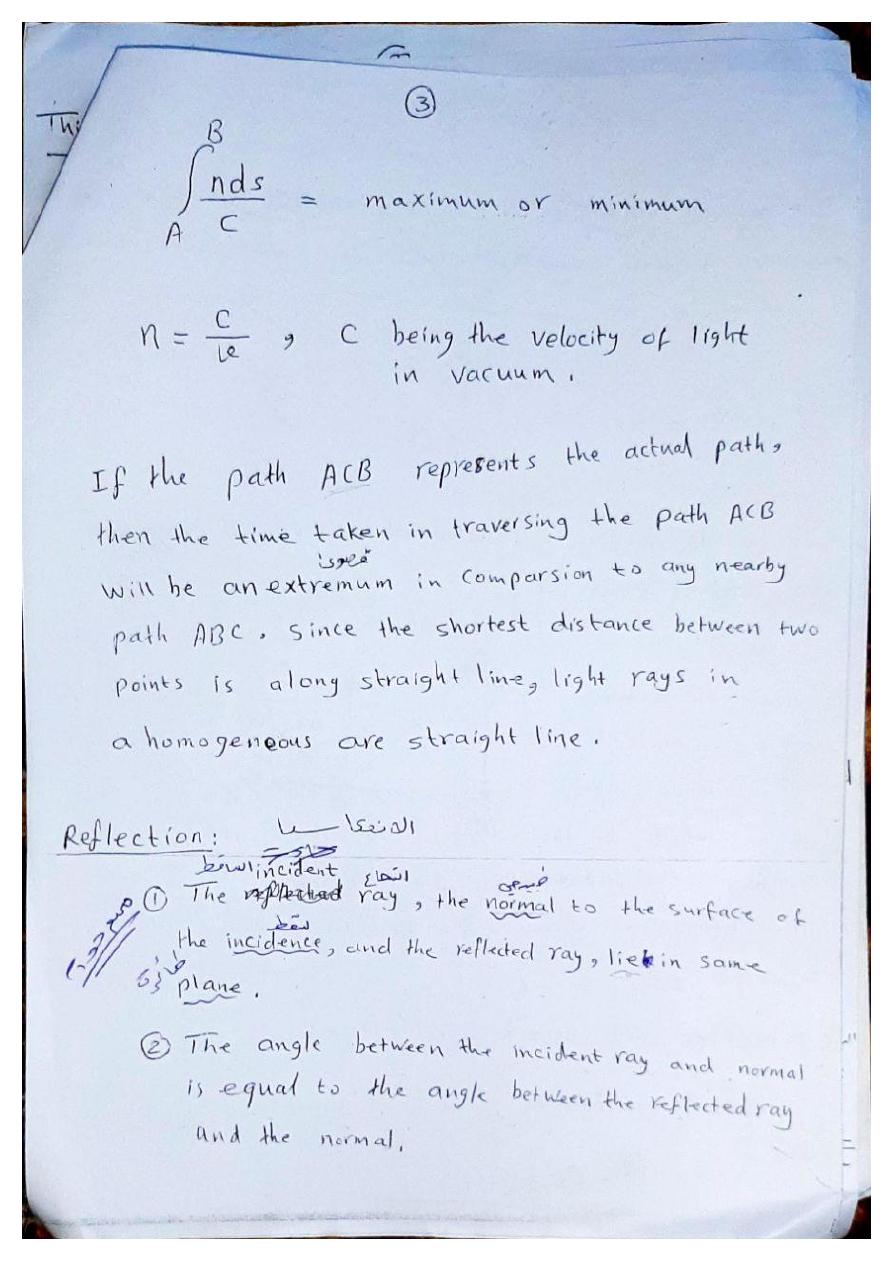 ③
Thi
∫_A^B nds/C = maximum or minimum
n = C/v , C being the velocity of light
in vacuum.
If the path ACB represents the actual path,
then the time taken in traversing the path ACB
قصوى
will be an extremum in Comparsion to any nearby
path ABC. Since the shortest distance between two
points is along straight line, light rays in
a homogeneous are straight line.
Reflection:
incident
① The reflected ray, the normal to the surface of
the incidence, and the reflected ray, lie in same
plane.
② The angle between the incident ray and normal
is equal to the angle between the reflected ray
and the normal.